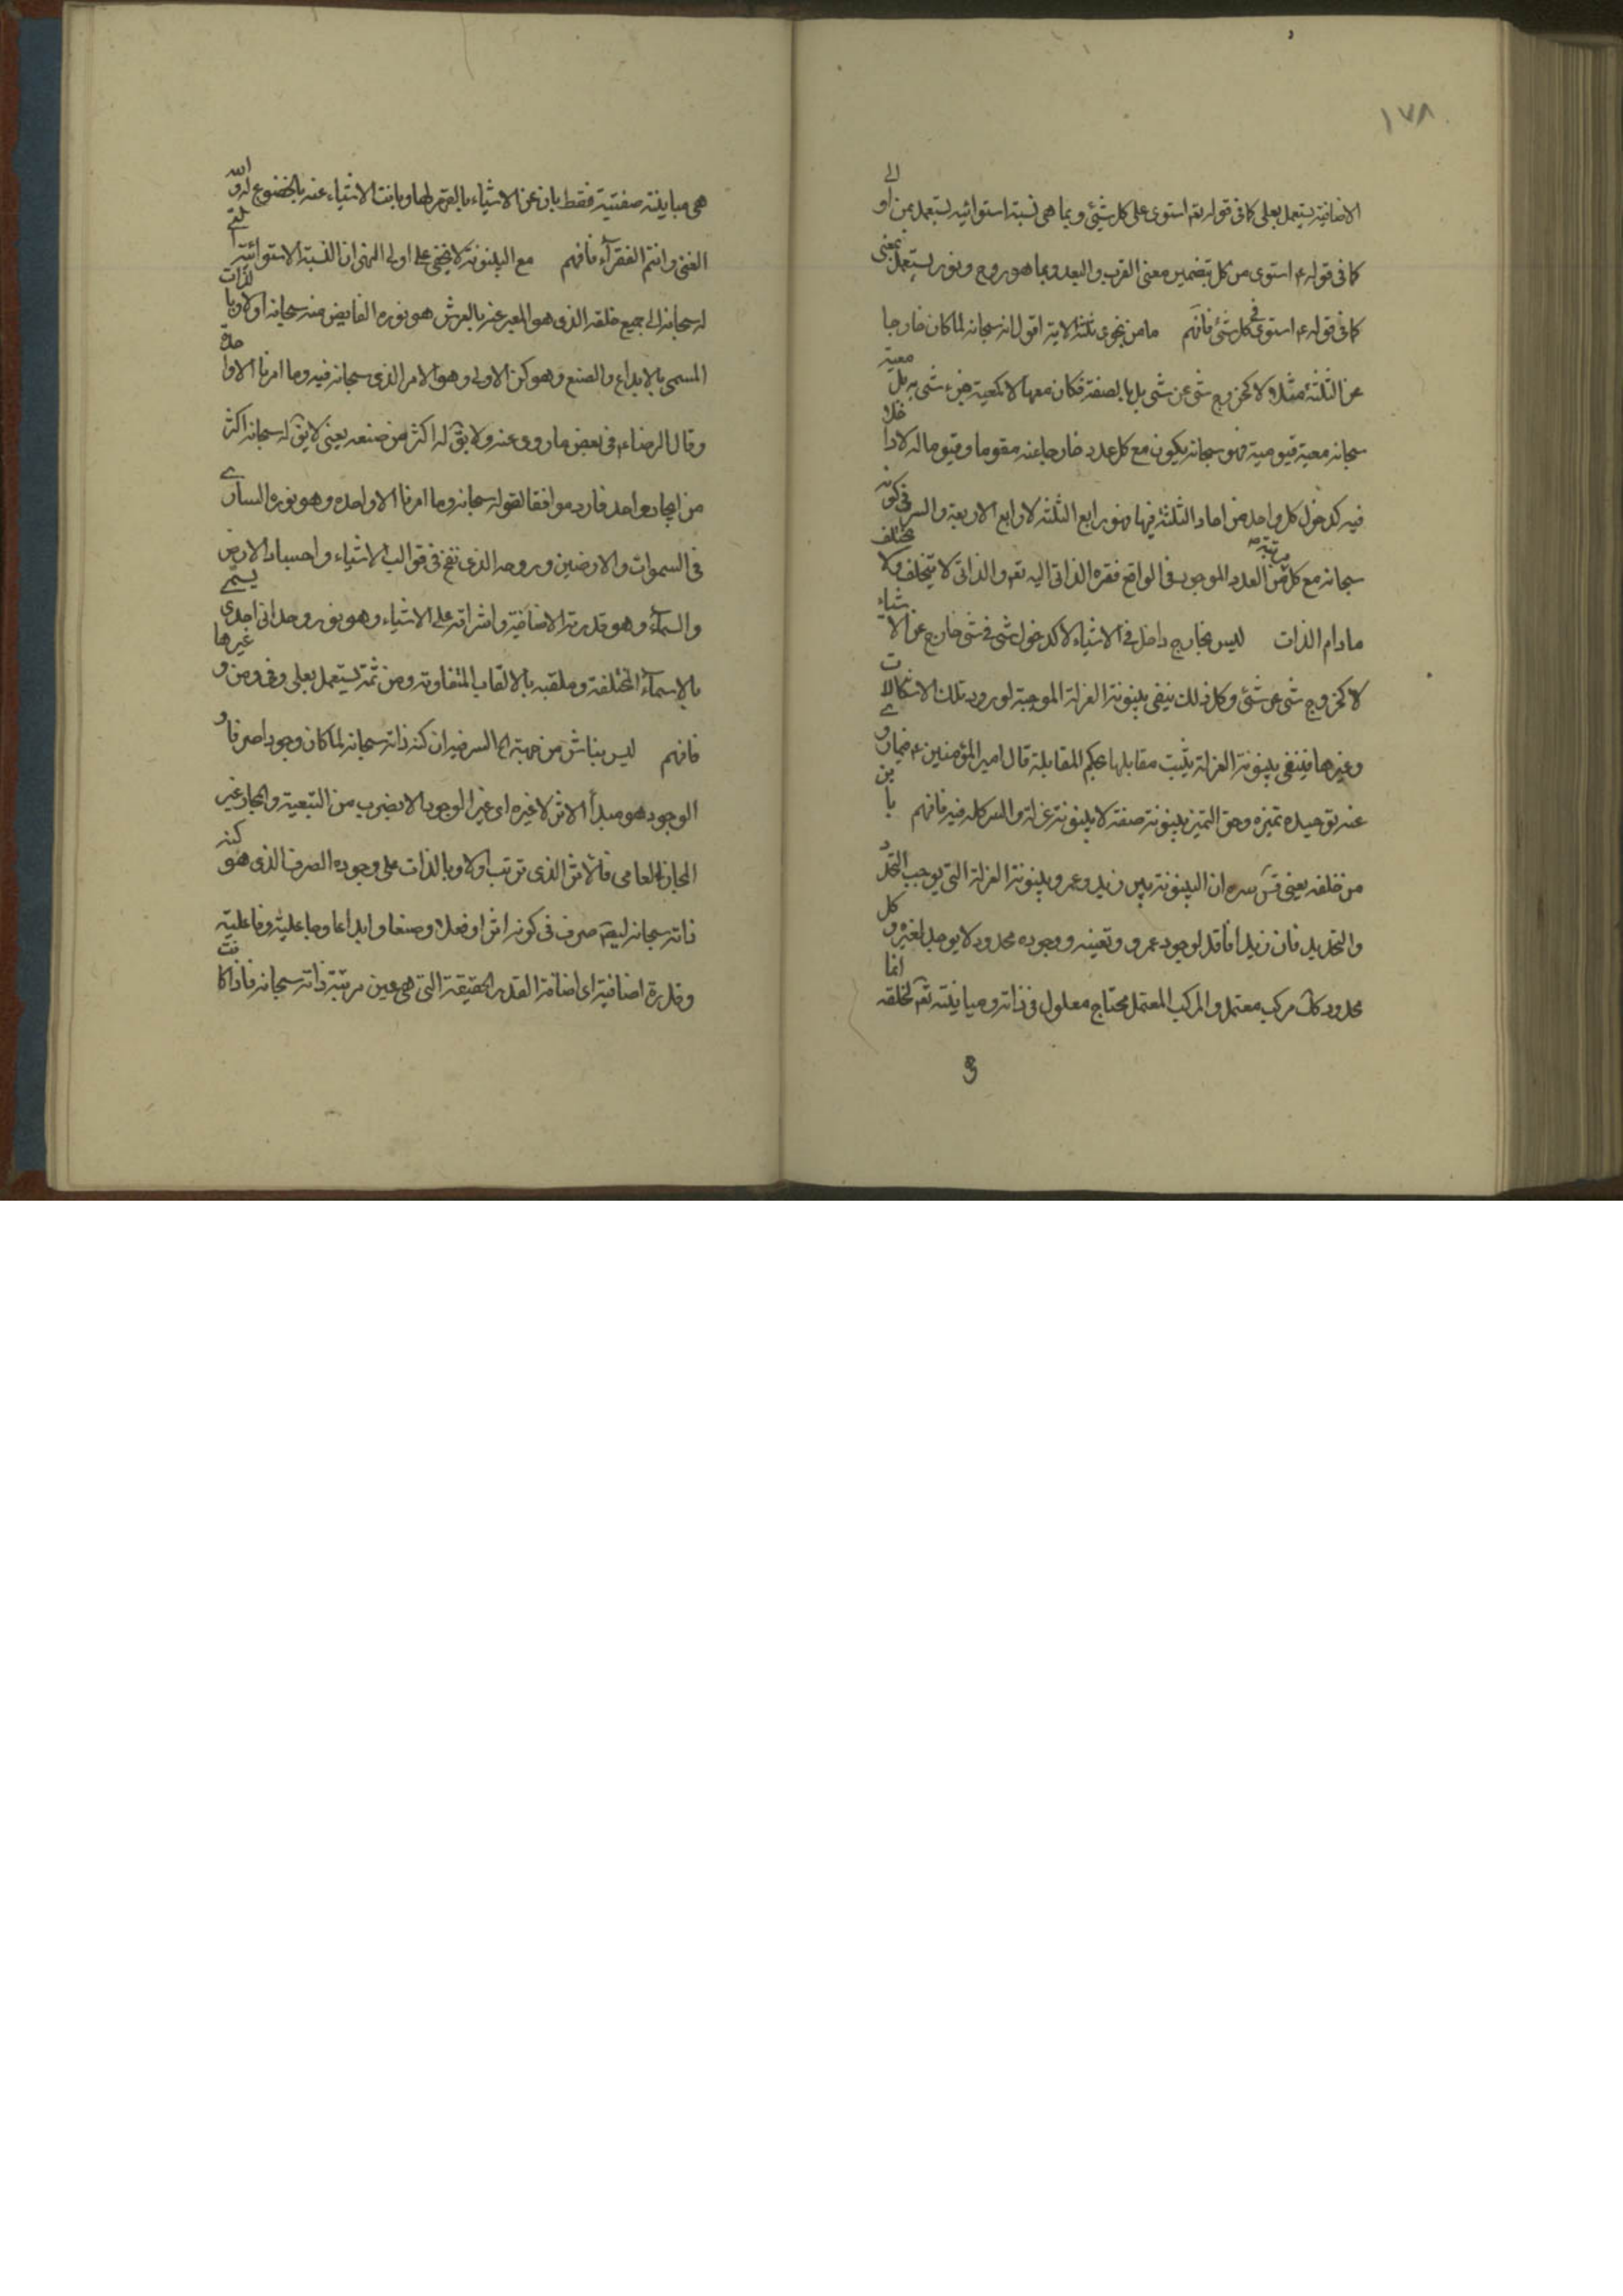 ١٧٨
الاضافية يستعمل بعلى كما فى قوله تعم استوى على كل شيئ وبما هى نسبة استوائيه يستعمل بمن او الى
كما فى قوله ع استوى من كل بتضمين معنى القرب والبعد وبما هو روح ونور يستعمل بمعنى
كما فى قوله ع استوى فى كل شئ فافهم مامن نجوى ثلثة الاية اقول انه سبحانه لما كان خارجا
عن الثلثة مثلا لا كخروج شئ عن شئ بل بالصفة فكان معها لا كمعية جزء شئ به بل معية
سبحانه معية قيومية فهو سبحانه يكون مع كل عدد خارجا عنه مقوما وقيوما له لا داخلا
فيه كدخول كل واحد من احاد الثلثة فيها فهو رابع الثلثة لا رابع الاربعة والسر فى كونه
سبحانه مع كل مرتبة من العدد الموجود فى الواقع فقره الذاتى اليه تعم والذاتى لا يتخلف ولا يختلف
مادام الذات ليس بخارج داخل فى الاشياء لا كدخول شئ فى شئ خارج عن الاشياء
لا كخروج شئ عن شئ وكل ذلك ينفى بينونة العزلة الموجبة لورود تلك الاشكالات
وغيرها فينفى بينونة العزلة يثبت مقابلها بحكم المقابلة قال امير المؤمنين ع فيما روى
عنه توحيده تميزه وحق التميز بينونة صفة لا بينونة عزلة والسر كله فيه فافهم باين
من خلقه يعنى قس سره ان البينونة بين زيد وعمر وبينونة العزلة التى يوجب التحدد
والتحديد فان زيدا فاقد لوجود عمرو وتعينه ووجوده محدود لا يوجد لغيره وكل
محدود كك مركب معتمل والمركب المعتمل محتاج معلول فى ذاته ومباينته تعم لخلقه انما
هى مباينة صفتية فقط بان عن الاشياء بالقهر لها وبانت الاشياء عنه بالخضوع له والله
الغنى وانتم الفقرآء فافهم مع البينونة لا يخفى على اولى النهى ان النسبة الاستوائية التى
له سبحانه الى جميع خلقه الذى هو المعبر عنه بالعرش هو نوره الفايض منه سبحانه اولا وبالذات
المسمى بالابداع والصنع وهو كن الاولى وهو الامر الذى سبحانه فيه وما امرنا الا واحدة
وقال الرضاء ع فى بعض ما روى عنه ولا يق له اكثر من صنعه يعنى لا يق له سبحانه اكثر
من ايجاد واحد فارد موافقا لقوله سبحانه وما امرنا الا واحده وهو نوره السارى
فى السموات والارضين وروحه الذى نفخ فى قوالب الاشياء واجساد الارض
والسمآء وهو قدرته الاضافية واشراقه على الاشياء وهو نور وحدانى احدى يسمى
بالاسمآء المختلفة وملقبه بالالقاب المتفاوته ومن ثمة يستعمل بعلى وفى ومن وغيرها
فافهم ليس بناش من جهته الخ السر فيه ان كنه ذاته سبحانه لما كان وجودا صرفا و
الوجود هو مبدأ الاثر لا غيره اى غير الوجود الا بضرب من التبعية والمجاز غير
المجاز العامى فالاثر الذى ترتب اولا وبالذات على وجوده الصرف الذى هو كنه
ذاته سبحانه ليصم صرف فى كونه اثرا وفعلا وصنعا وابداعا وجاعلية وفاعلية
وقدرة اضافية اى اضافة القدرة الحقيقة التى هى عين مرتبة ذاته سبحانه فاذا كانت